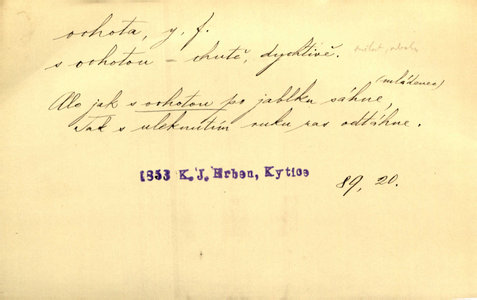 ochota, y, f.
s ochotou – chutě, dychtivě.
(mládenec)
Ale jak s ochotou po jablku sáhne,
Tak s uleknutím ruku zas odtáhne.
1853 K. J. Erben, Kytice
89, 20.